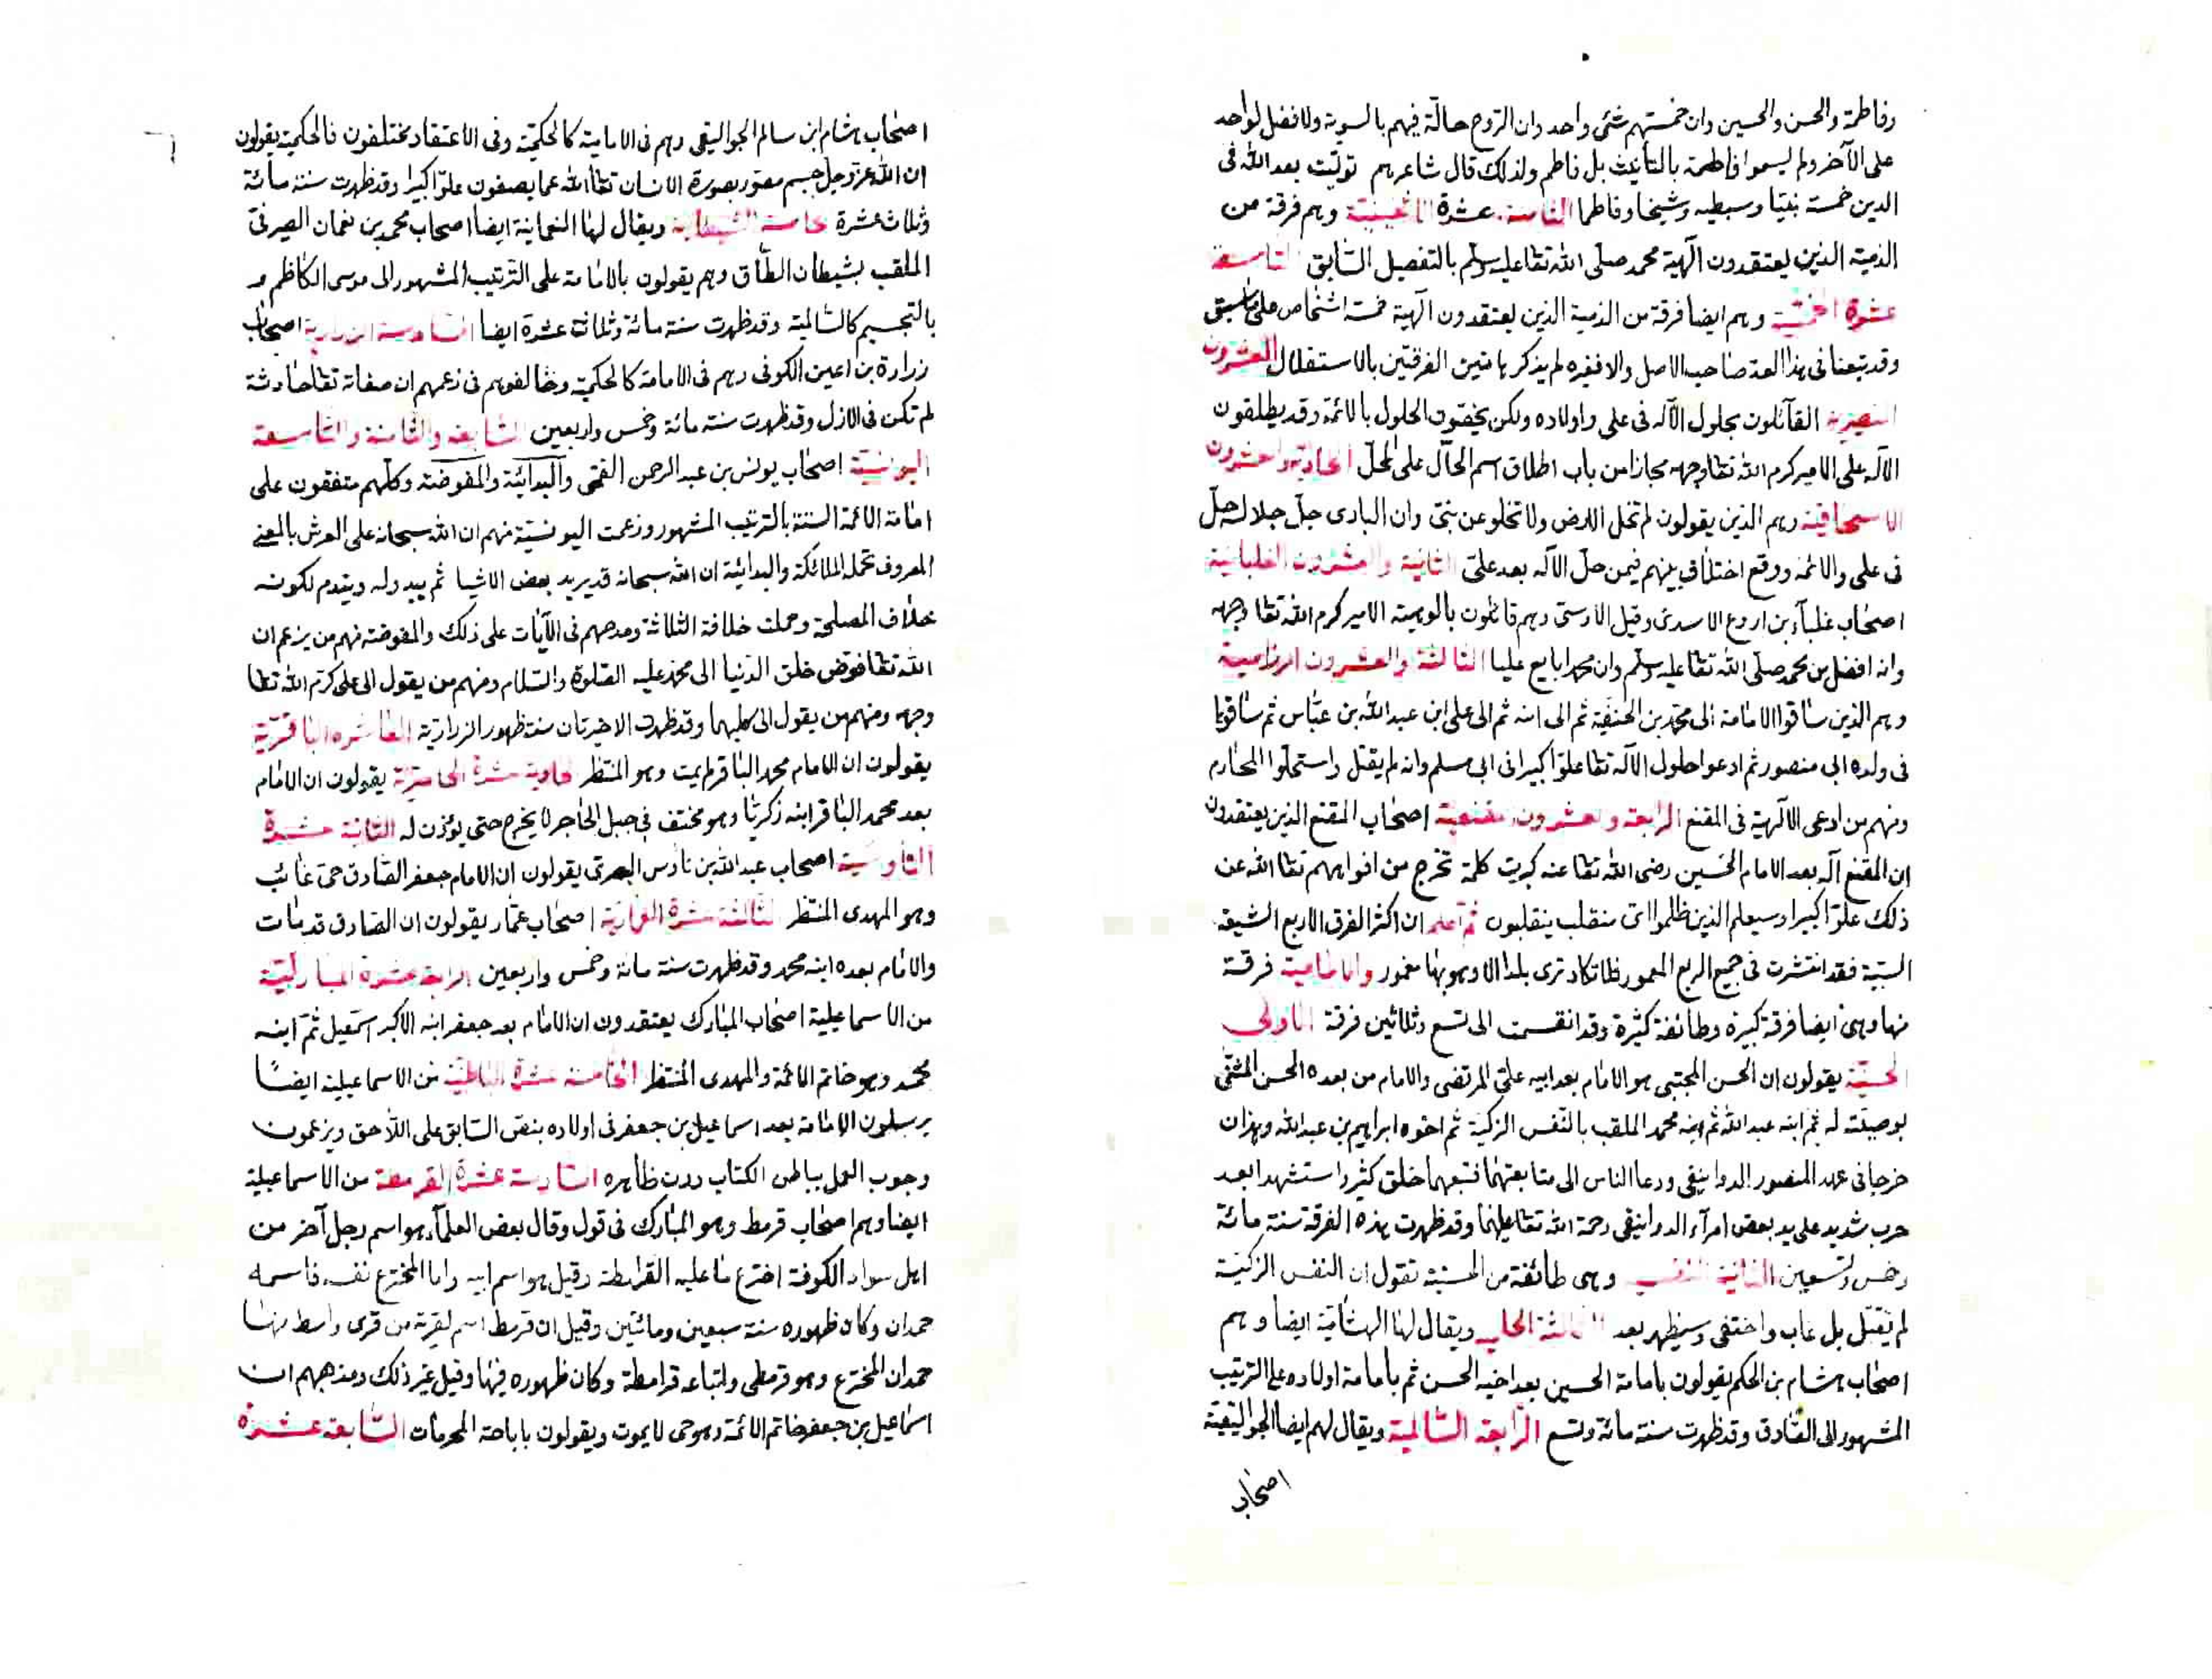 وفاطمة والحسن والحسين وان خمستهم شئ واحد وان الروح حالة فيهم بالسوية ولا فضل لواحد
على الآخر ولم يسموا فاطمة بالتانيث بل فاطم ولذلك قال شاعرهم توليت بعد الله فى
الدين خمسة نبيا وسبطيه وشيخا وفاطما الثامنة عشرة وهم فرقة من
الذمية الذين يعتقدون آلهية محمد صلى الله تعا عليه وسلم بالتفصيل السابق التاسعة
عشرة الخمسية وهم ايضا فرقة من الذمية الذين يعتقدون آلهية خمسة اشخاص على ما سبق
وقد تبعنا فى هذا العد صاحب الاصل والا فغيره لم يذكر هاتين الفرقتين بالاستقلال العشرون
النصيرية القآئلون بحلول الآله فى على واولاده ولكن يخصون الحلول بالائمة وقد يطلقون
الآله على الامير كرم الله تعا وجهه مجازا من باب اطلاق اسم الحال على المحل الحادية والعشرون
الاسحاقية وهم الذين يقولون لم تخل الارض ولا تخلو عن نبى وان البارى جل جلاله حل
فى على والائمة ووقع اختلاف بينهم فيمن حل الآله بعد على الثانية والعشرون العلبائية
اصحاب علبآء بن اروع الاسدى وقيل الاوسى وهم قائلون بالوهية الامير كرم الله تعا وجهه
وانه افضل من محمد صلى الله تعا عليه وسلم وان محمدا بايع عليا الثالثة والعشرون الرزامية
وهم الذين ساقوا الامامة الى محمد بن الحنفية ثم الى ابنه ثم الى على ابن عبد الله بن عباس ثم ساقوها
فى ولده الى منصور ثم ادعوا حلول الآله تعا علوا كبيرا فى ابى مسلم وانه لم يقتل واستحلوا المحارم
ومنهم من ادعى الالهية فى المقنع الرابعة والعشرون المقنعية اصحاب المقنع الذين يعتقدون
ان المقنع آله بعد الامام الحسين رضى الله تعا عنه كبرت كلمة تخرج من افواههم تعا الله عن
ذلك علوا كبيرا وسيعلم الذين ظلموا اى منقلب ينقلبون ثم اعلم ان اكثر الفرق الاربع الشيعة
السبية فقد انتشرت فى جميع الربع المعمور فلا تكاد ترى بلدا الا وهو بها مغمور واما الامامية فرقة
منها وهى ايضا فرقة كبيرة وطائفة كثيرة وقد انقسمت الى تسع وثلاثين فرقة الاولى
الحسنية يقولون ان الحسن المجتبى هو الامام بعد ابيه على المرتضى والامام من بعده الحسن المثنى
بوصيته له ثم ابنه عبد الله ثم ابنه محمد الملقب بالنفس الزكية ثم اخوه ابراهيم بن عبد الله وهذان
خرجا فى عهد المنصور الدوانيقى ودعا الناس الى متابعتهما فتبعهما خلق كثير واستشهدا بعد
حرب شديد على يد بعض امرآء الدوانيقى رحمة الله تعا عليهما وقد ظهرت هذه الفرقة سنة مائة
وخمس وتسعين الثانية النفسية وهى طائفة من الحسنية تقول ان النفس الزكية
لم يقتل بل غاب واختفى وسيظهر بعد الثالثة ويقال لها الهشامية ايضا وهم
اصحاب هشام بن الحكم يقولون بامامة الحسين بعد اخيه الحسن ثم بامامة اولاده على الترتيب
المشهور الى الصادق وقد ظهرت سنة مائة وتسع الرابعة السالمية ويقال لهم ايضا الجواليقية
اصحاب
اصحاب هشام ابن سالم الجواليقى وهم فى الامامية كالحكمية وفى الاعتقاد مختلفون فالحكمية يقولون
ان الله عز وجل جسم مصور بصورة الانسان تعا الله عما يصفون علوا كبيرا وقد ظهرت سنة مائة
وثلاث عشرة خامسة الشيطانية ويقال لها النعمانية ايضا اصحاب محمد بن نعمان الصيرفى
الملقب بشيطان الطاق وهم يقولون بالامامة على الترتيب المشهور الى موسى الكاظم
بالتجسيم كالسالمية وقد ظهرت سنة مائة وثلاثة عشرة ايضا السادسة الزرارية اصحاب
زرارة بن اعين الكوفى وهم فى الامامة كالحكمية وخالفوهم فى زعمهم ان صفاته تعا حادثة
لم تكن فى الازل وقد ظهرت سنة مائة وخمس واربعين السابعة والثامنة والتاسعة
اليونسية اصحاب يونس بن عبد الرحمن القمى والبدائية والمفوضة وكلهم متفقون على
امامة الائمة الستة بالترتيب المشهور وزعمت اليونسية منهم ان الله سبحانه على العرش بالمعنى
المعروف تحمله الملائكة والبدائية ان الله سبحانه قد يريد بعض الاشيا ثم يبدوله ويندم لكونه
خلاف المصلحة وحملت خلافة الثلاثة ومدحهم فى الآيات على ذلك والمفوضة منهم من يزعم ان
الله تعا فوض خلق الدنيا الى محمد عليه الصلوة والسلام ومنهم من يقول الى على كرم الله تعا
وجهه ومنهم من يقول الى كليهما وقد ظهرت الاخيرتان سنة ظهور الزرارية العاشرة الباقرية
يقولون ان الامام محمد الباقر لم يمت وهو المنتظر الحادية عشرة الحاصرية يقولون ان الامام
بعد محمد الباقر ابنه زكريا وهو مختف فى جبل الحاجر لا يخرج حتى يؤذن له الثانية عشرة
الناوسية اصحاب عبد الله بن ناوس البصرى يقولون ان الامام جعفر الصادق حى غائب
وهو المهدى المنتظر الثالثة عشرة العمارية اصحاب عمار يقولون ان الصادق قد مات
والامام بعده ابنه محمد وقد ظهرت سنة مائة وخمس واربعين الرابعة عشرة المباركية
من الاسماعيلية اصحاب المبارك يعتقدون ان الامام بعد جعفر ابنه الاكبر اسمعيل ثم ابنه
محمد وهو خاتم الائمة والمهدى المنتظر الخامسة عشرة الباطنية من الاسماعيلية ايضا
يرسلون الامامة بعد اسماعيل بن جعفر فى اولاده بنص السابق على اللاحق ويزعمون
وجوب العمل بباطن الكتاب دون ظاهره السادسة عشرة القرمطة من الاسماعيلية
ايضا وهم اصحاب قرمط وهو المبارك فى قول وقال بعض العلمآء هو اسم رجل آخر من
اهل سواد الكوفة اخترع ما عليه القرامطة وقيل هو اسم ابيه واما المخترع نفسه فاسمه
حمدان وكان ظهوره سنة سبعين ومائتين وقيل ان قرمط اسم لقرية من قرى واسط منها
حمدان المخترع وهو قرمطى واتباعه قرامطة وكان ظهوره فيها وقيل غير ذلك ومذهبهم ان
اسماعيل بن جعفر خاتم الائمة وهو حى لا يموت ويقولون باباحة المحرمات السابعة عشرة